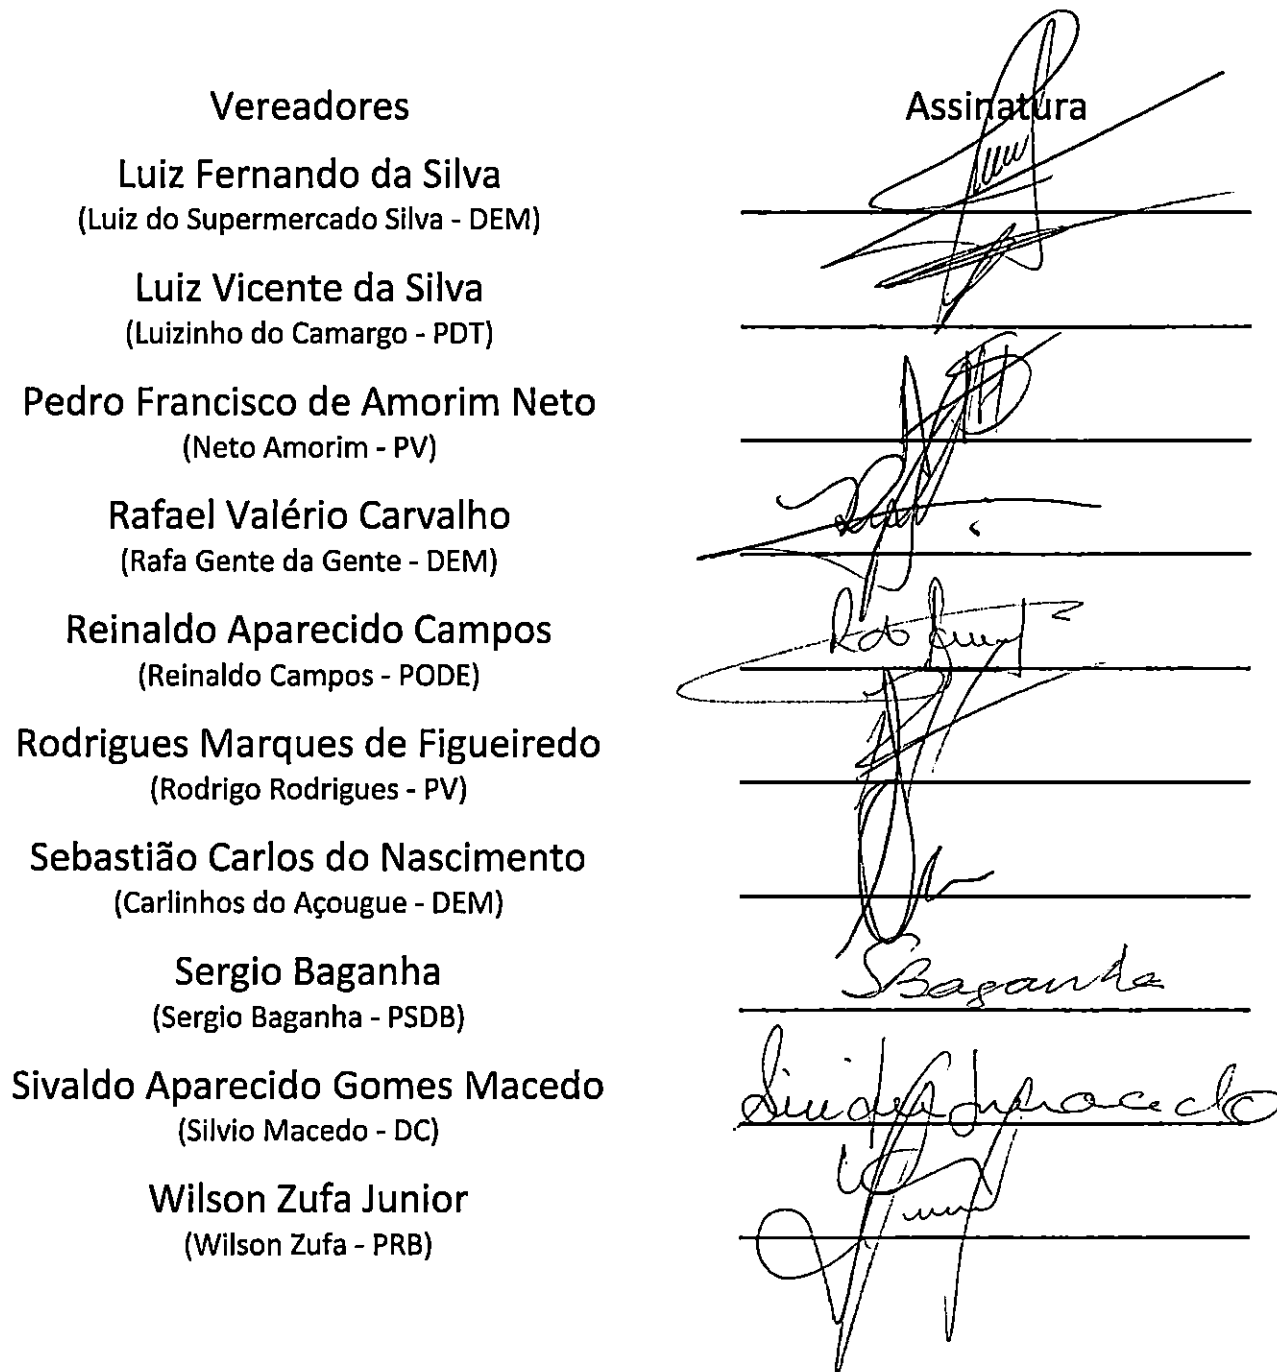 Vereadores Assinatura
Luiz Fernando da Silva
(Luiz do Supermercado Silva - DEM)
Luiz Vicente da Silva
(Luizinho do Camargo - PDT)
Pedro Francisco de Amorim Neto
(Neto Amorim - PV)
Rafael Valério Carvalho
(Rafa Gente da Gente - DEM)
Reinaldo Aparecido Campos
(Reinaldo Campos - PODE)
Rodrigues Marques de Figueiredo
(Rodrigo Rodrigues - PV)
Sebastião Carlos do Nascimento
(Carlinhos do Açougue - DEM)
Sergio Baganha SBaganha
(Sergio Baganha - PSDB)
Sivaldo Aparecido Gomes Macedo Macedo
(Silvio Macedo - DC)
Wilson Zufa Junior
(Wilson Zufa - PRB)